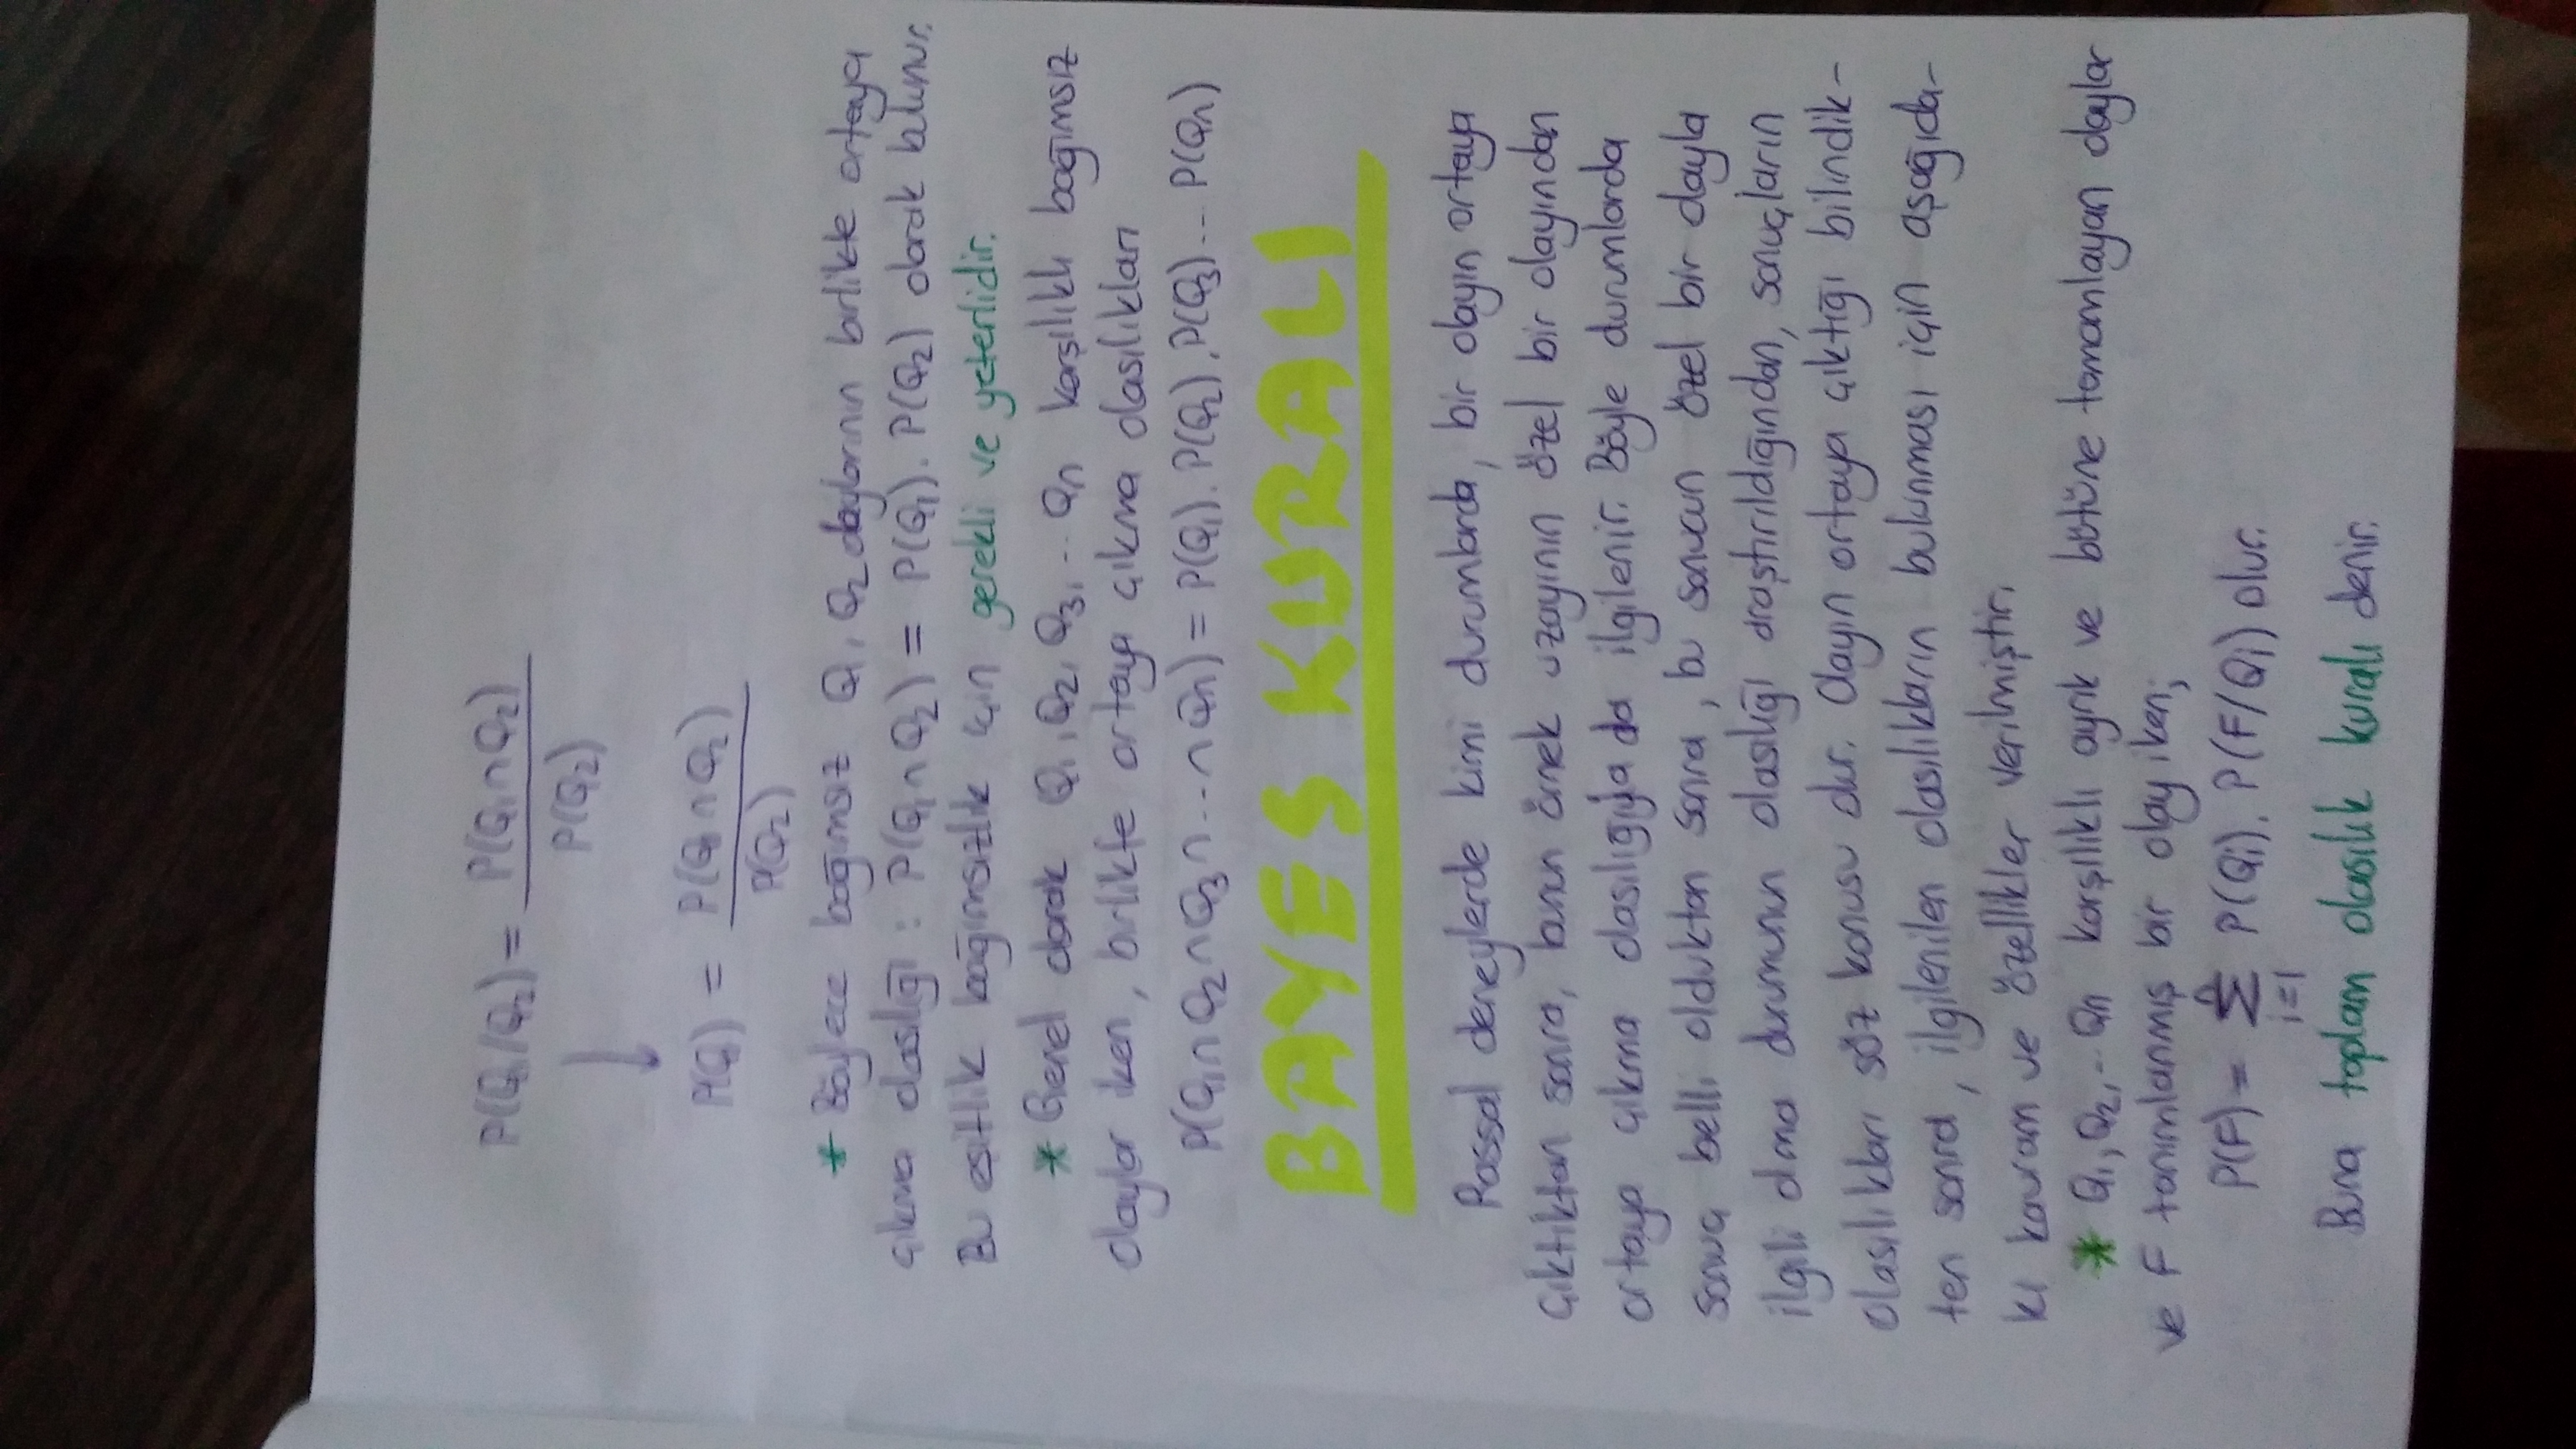 P(Q₁/Q₂) = P(Q₁∩Q₂) / P(Q₂)
↓
P(Q₁) = P(Q₁∩Q₂) / P(Q₂)
* Böylece bağımsız Q₁, Q₂ olaylarının birlikte ortaya
çıkma olasılığı : P(Q₁∩Q₂) = P(Q₁). P(Q₂) olarak bulunur.
Bu eşitlik bağımsızlık için gerekli ve yeterlidir.
* Genel olarak Q₁, Q₂, Q₃, .. Qn karşılıklı bağımsız
olaylar iken, birlikte ortaya çıkma olasılıkları
P(Q₁∩Q₂∩Q₃∩...∩Qn) = P(Q₁). P(Q₂). P(Q₃)... P(Qn)
BAYES KURALI
Rassal deneylerde kimi durumlarda, bir olayın ortaya
çıktıktan sonra, bunun örnek uzayının özel bir olayından
ortaya çıkma olasılığıyla da ilgilenir. Böyle durumlarda
sonuç belli olduktan sonra, bu sonucun özel bir olayla
ilgili olma durumunun olasılığı araştırıldığından, sonuçların
olasılıkları söz konusu olur. Olayın ortaya çıktığı bilindik-
ten sonra, ilgilenilen olasılıkların bulunması için aşağıda-
ki kavram ve özellikler verilmiştir.
* Q₁, Q₂, .. Qn karşılıklı ayrık ve bütüne tamamlayan olaylar
ve F tanımlanmış bir olay iken;
P(F) = n∑i=1 P(Qi). P(F/Qi) olur.
Buna toplam olasılık kuralı denir.